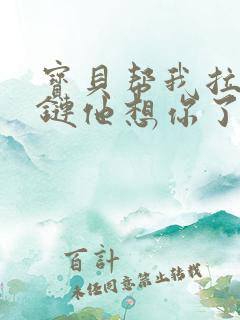 寳貝幫我拉
鏈他想你了
百計
未经同意禁止转载